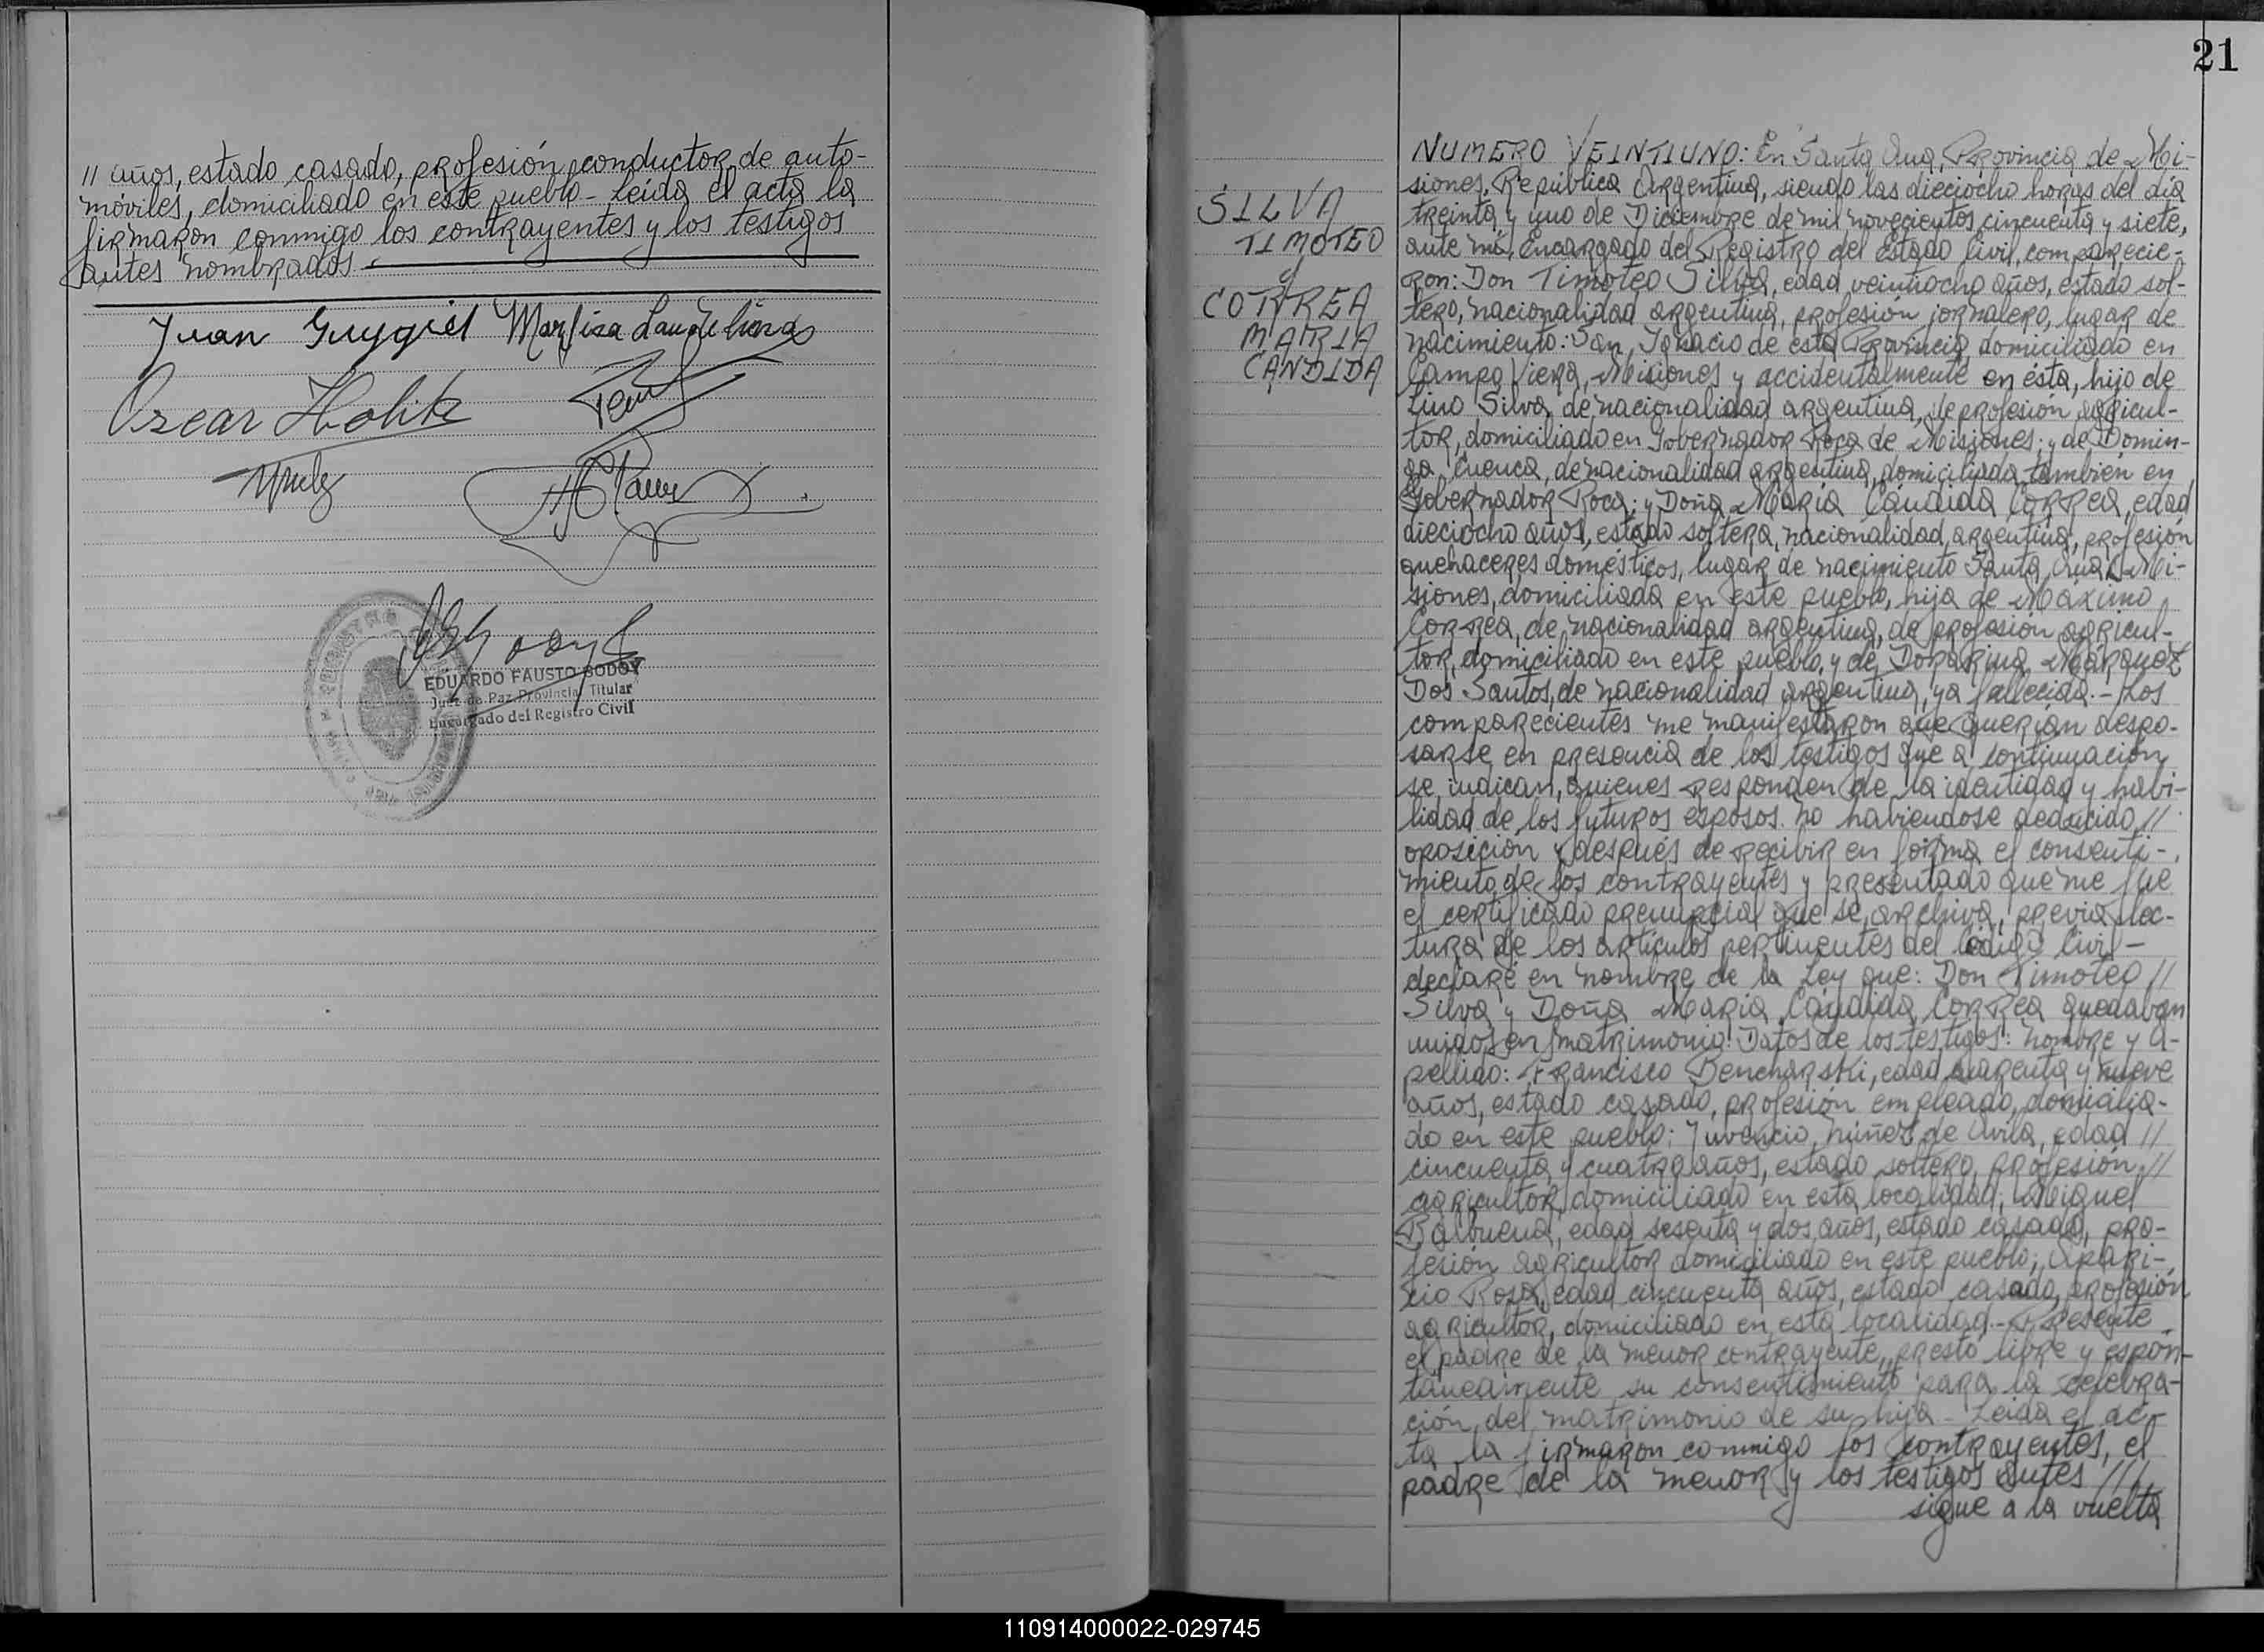 // años, estado casado, profesión conductor de auto-
móviles, domiciliado en este pueblo - Leída el acta la
firmaron conmigo los contrayentes y los testigos
antes nombrados.
Juan
Oscar
EDUARDO FAUSTO GODOY
Juez de Paz Provincial Titular
Encargado del Registro Civil
21
SILVA
TIMOTEO
y
CORREA
MARIA
CANDIDA
NUMERO VEINTIUNO: En Santa Ana, Provincia de Mi-
siones, República Argentina, siendo las dieciocho horas del día
treinta y uno de Diciembre de mil novecientos cincuenta y siete,
ante mí, Encargado del Registro del Estado Civil, comparecie-
ron: Don Timoteo Silva, edad veintiocho años, estado sol-
tero, nacionalidad argentina, profesión jornalero, lugar de
nacimiento: San Ignacio de esta Provincia, domiciliado en
Campo Viera, Misiones y accidentalmente en ésta, hijo de
Lino Silva, de nacionalidad argentina, de profesión agricul-
tor, domiciliado en Gobernador Roca de Misiones; y de Domin-
ga Cuenca, de nacionalidad argentina, domiciliada también en
Gobernador Roca; y Doña María Cándida Correa, edad
dieciocho años, estado soltera, nacionalidad argentina, profesión
quehaceres domésticos, lugar de nacimiento Santa Ana, Mi-
siones, domiciliada en este pueblo, hija de Máximo
Correa, de nacionalidad argentina, de profesión agricul-
tor, domiciliado en este pueblo y de Dorarina Marquez
Dos Santos, de nacionalidad argentina, ya fallecida.- Los
comparecientes me manifestaron que querían despo-
sarse en presencia de los testigos que a continuación
se indican, quienes responden de la identidad y habi-
lidad de los futuros esposos. No habiéndose deducido //
oposición y después de recibir en forma el consenti-
miento de los contrayentes y presentado que me fue
el certificado prenupcial que se archiva, previa lec-
tura de los artículos pertinentes del Código Civil -
declaré en nombre de la Ley que: Don Timoteo //
Silva y Doña María Cándida Correa quedaban
unidos en matrimonio. Datos de los testigos: nombre y a-
pellido: Francisco Bencharski, edad cuarenta y nueve
años, estado casado, profesión empleado, domicilia-
do en este pueblo; Juvencio Núñez de Avila, edad //
cincuenta y cuatro años, estado soltero, profesión //
agricultor, domiciliado en esta localidad; Miguel
Balbuena, edad sesenta y dos años, estado casado, pro-
fesión agricultor domiciliado en este pueblo; Apari-
cio Rosa, edad cincuenta años, estado casado, profesión
agricultor, domiciliado en esta localidad.- Presente
el padre de la menor contrayente, prestó libre y espon-
táneamente su consentimiento para la celebra-
ción del matrimonio de su hija - Leída el ac-
ta la firmaron conmigo los contrayentes, el
padre de la menor y los testigos antes ///
sigue a la vuelta
110914000022-029745